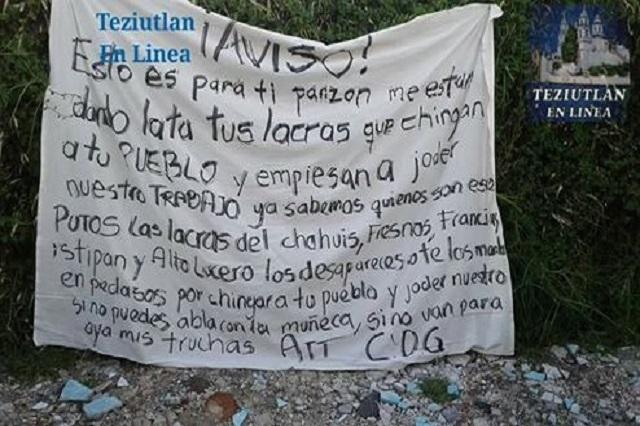 Teziutlan
En Linea
TEZIUTLÁN
EN LINEA
¡AVISO!
Esto es para ti panzon me estan
dando lata tus lacras que chingan
a tu PUEBLO y empiesan a joder
nuestro TRABAJO ya sabemos quienes son esos
PUTOS las lacras del chahuis, Fresnos, Francia,
istipan y Alto Lucero los desapareces o te los mando
en pedasos por chingar a tu pueblo y joder nuestro
si no puedes abla con la muñeca, si no van para
aya mis truchas ATT C.D.G